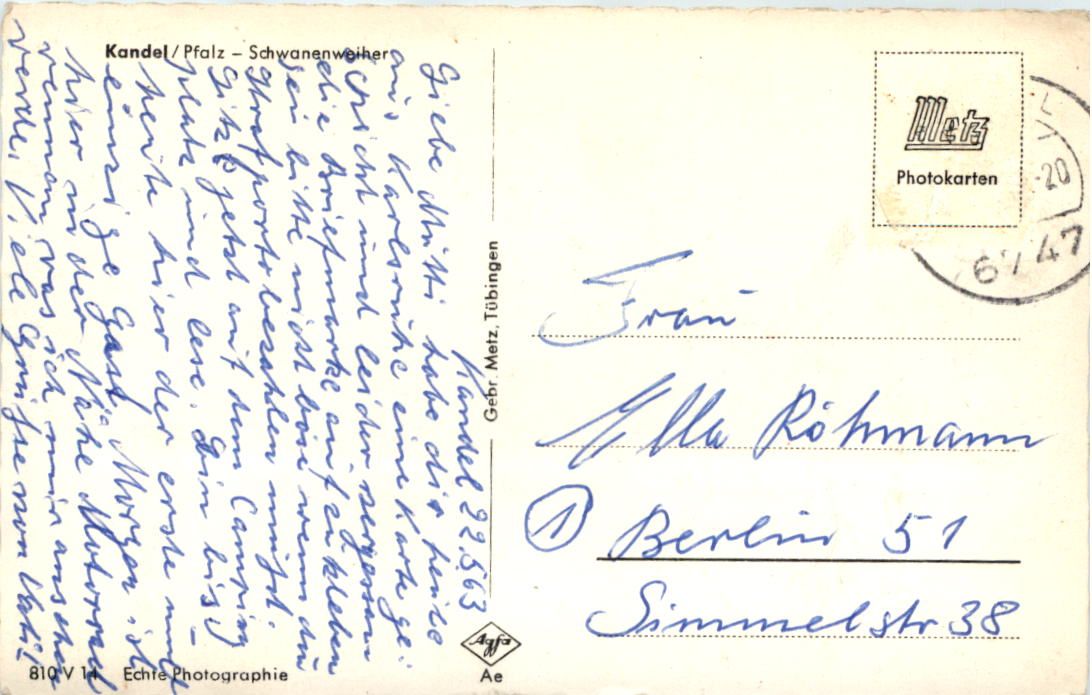 Kandel / Pfalz – Schwanenweiher
Kandel 22.5.63
Liebe Mutti habe dir heute
aus Karlsruhe eine Karte ge-
schickt und leider vergessen
die Briefmarke aufzukleben
sei bitte nicht böse wenn du
Strafporto bezahlen mußt.
Sitze jetzt auf dem Camping
platz und lese. Bin bis
heute hier der erste und
einzige Gast. Morgen ist
hier in der Nähe Motorrad
rennen was ich mir ansehen
werde. Viele Grüße von
810 V 14 Echte Photographie
Gebr. Metz, Tübingen
Agfa
Ae
Metz
Photokarten
-20
47
Frau
Ella Röhmann
1 Berlin 51
Simmelstr 38